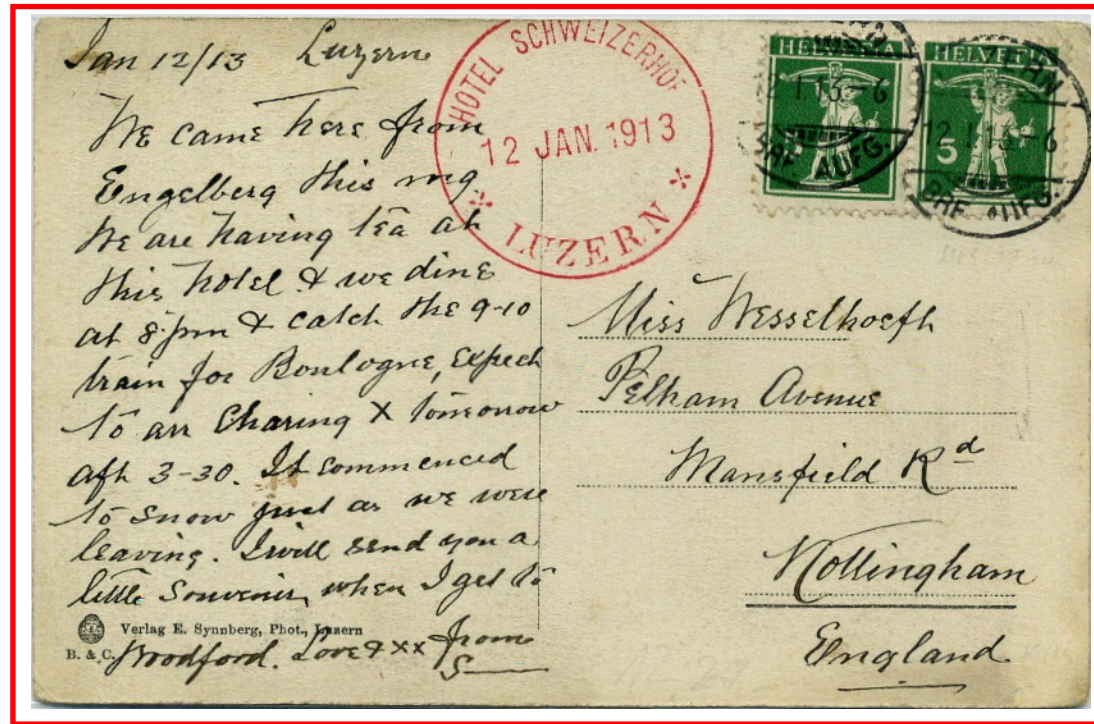 Jan 12/13 Luzern
We came here from
Engelberg this mng
We are having tea at
this hotel & we dine
at 8 pm & catch the 9-10
train for Boulogne, Expect
to arr Charing X tomorrow
aft 3-30. It commenced
to snow just as we were
leaving. I will send you a
little Souvenir, when I get to
Woodford. Love & xx from
S
Verlag E. Synnberg, Phot., Luzern
B. & C.
HOTEL SCHWEIZERHOF
12 JAN. 1913
* LUZERN *
HELVETIA
HELVETIA
5
12.I.13.-6
BRF. AUFG.
12.I.13.-6
BRF. AUFG.
Miss Wesselhoeft
Pelham Avenue
Mansfield Rd
Nottingham
England